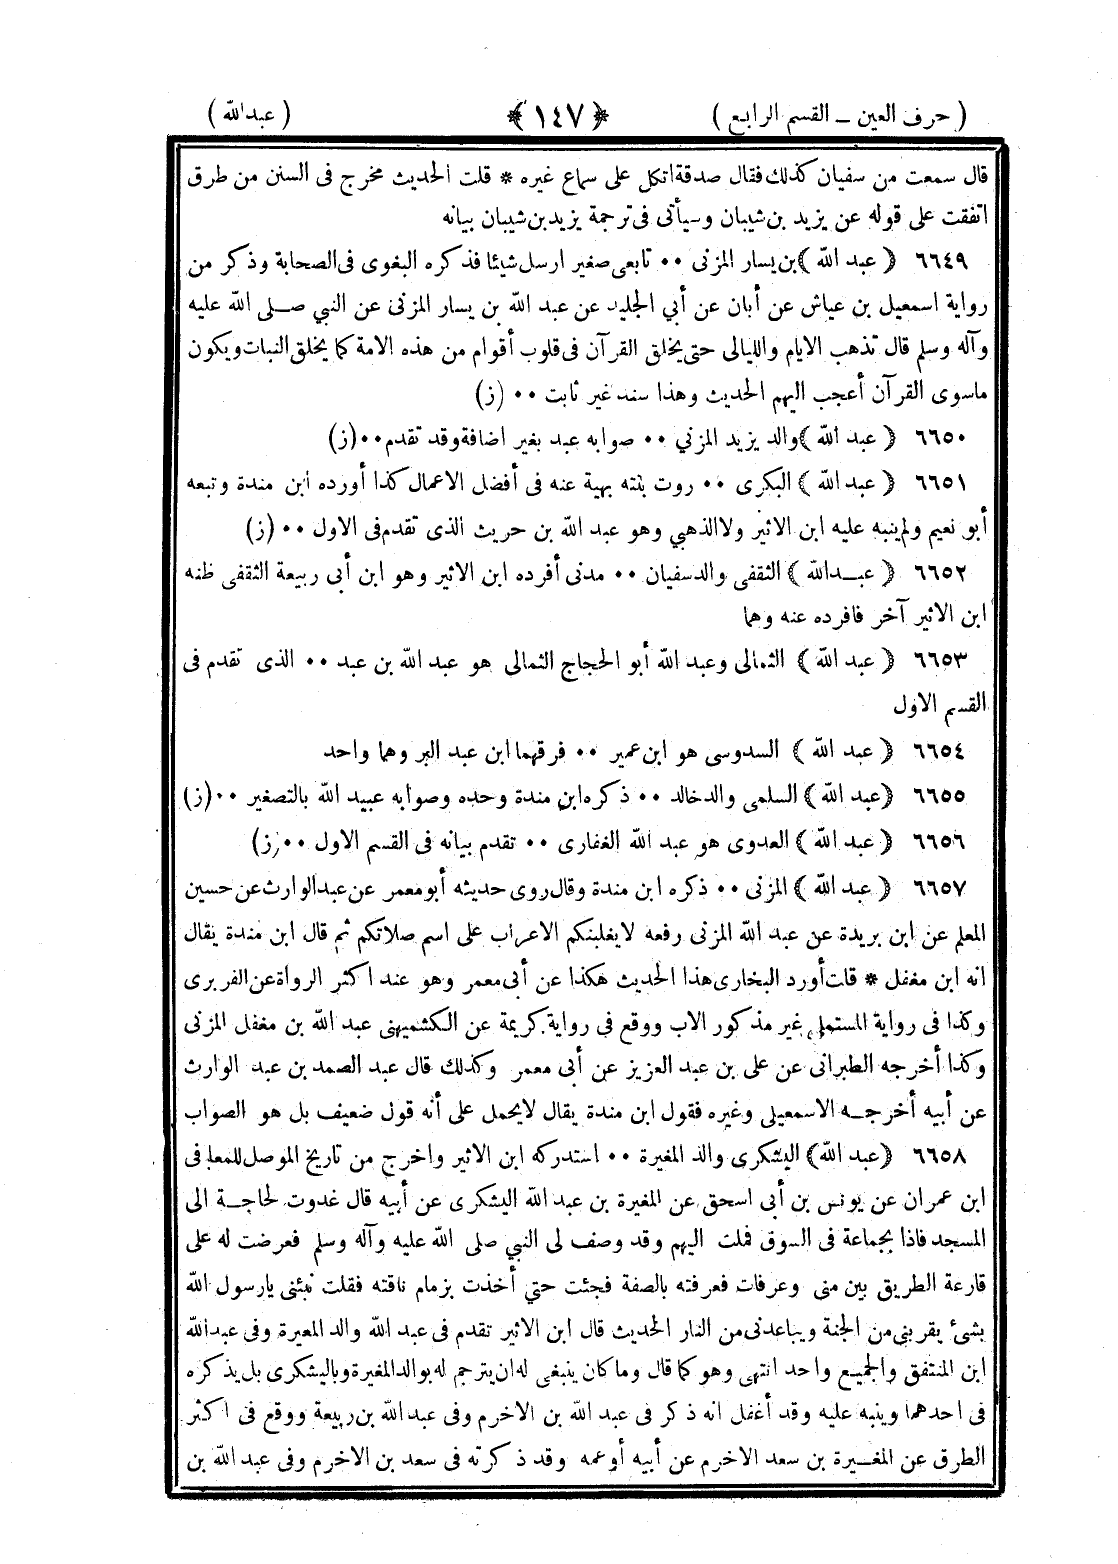 ( حرف العين ــ القسم الرابع ) ﴿ ١٤٧ ﴾ ( عبدالله )
قال سمعت من سفيان كذلك فقال صدقة اتكل على سماع غيره * قلت الحديث مخرج فى السنن من طرق
اتفقت على قوله عن يزيد بن شيبان وسيأتى فى ترجمة يزيد بن شيبان بيانه
٦٦٤٩ ﴿ عبد الله ﴾ بن يسار المزنى ٠٠ تابعى صغير ارسل شيئا فذكره البغوى فى الصحابة وذكر من
رواية اسمعيل بن عياش عن أبان عن أبي الجليد عن عبد الله بن يسار المزنى عن النبي صلى الله عليه
وآله وسلم قال تذهب الايام والليالى حتى يخلق القرآن فى قلوب أقوام من هذه الامة كما يخلق النبات ويكون
ماسوى القرآن أعجب اليهم الحديث وهذا سند غير ثابت ٠٠ (ز)
٦٦٥٠ ﴿ عبد الله ﴾ والد يزيد المزني ٠٠ صوابه عبد بغير اضافة وقد تقدم ٠٠ (ز)
٦٦٥١ ﴿ عبد الله ﴾ البكرى ٠٠ روت بنته بهية عنه فى أفضل الاعمال كذا أورده ابن مندة وتبعه
أبو نعيم ولم ينبه عليه ابن الاثير ولا الذهبي وهو عبد الله بن حريث الذى تقدم فى الاول ٠٠ (ز)
٦٦٥٢ ﴿ عبد الله ﴾ الثقفى والد سفيان ٠٠ مدنى أفرده ابن الاثير وهو ابن أبى ربيعة الثقفى ظنه
ابن الاثير آخر فافرده عنه وهما
٦٦٥٣ ﴿ عبد الله ﴾ الثمالى وعبد الله أبو الحجاج الثمالى هو عبد الله بن عبد ٠٠ الذى تقدم فى
القسم الاول
٦٦٥٤ ﴿ عبد الله ﴾ السدوسى هو ابن عمير ٠٠ فرقهما ابن عبد البر وهما واحد
٦٦٥٥ ﴿عبد الله ﴾ السلمى والد خالد ٠٠ ذكره ابن مندة وحده وصوابه عبيد الله بالتصغير ٠٠ (ز)
٦٦٥٦ ﴿ عبد الله ﴾ العدوى هو عبد الله الغفارى ٠٠ تقدم بيانه فى القسم الاول ٠٠ (ز)
٦٦٥٧ ﴿ عبد الله ﴾ المزنى ٠٠ ذكره ابن مندة وقال روى حديثه أبو معمر عن عبد الوارث عن حسين
المعلم عن ابن بريدة عن عبد الله المزنى رفعه لايغلبنكم الاعراب على اسم صلاتكم ثم قال ابن مندة يقال
انه ابن مغفل * قلت أورد البخارى هذا الحديث هكذا عن أبى معمر وهو عند اكثر الرواة عن الفربرى
وكذا فى رواية المستملى غير مذكور الاب ووقع فى رواية كريمة عن الكشميهنى عبد الله بن مغفل المزنى
وكذا أخرجه الطبرانى عن على بن عبد العزيز عن أبى معمر وكذلك قال عبد الصمد بن عبد الوارث
عن أبيه أخرجه الاسمعيلى وغيره فقول ابن مندة يقال لايحمل على أنه قول ضعيف بل هو الصواب
٦٦٥٨ ﴿عبد الله﴾ اليشكرى والد المغيرة ٠٠ استدركه ابن الاثير واخرج من تاريخ الموصل للمعافى
ابن عمران عن يونس بن أبى اسحق عن المغيرة بن عبد الله اليشكرى عن أبيه قال غدوت لحاجة الى
المسجد فاذا بجماعة فى السوق فملت اليهم وقد وصف لى النبي صلى الله عليه وآله وسلم فعرضت له على
قارعة الطريق بين منى وعرفات فعرفته بالصفة فجئت حتي أخذت بزمام ناقته فقلت نبئنى يارسول الله
بشئ يقربنى من الجنة ويباعدنى من النار الحديث قال ابن الاثير تقدم فى عبد الله والد المغيرة وفى عبد الله
ابن المنتفق والجميع واحد انتهى وهو كما قال وما كان ينبغى له ان يترجم له بوالد المغيرة وباليشكرى بل يذكره
فى احدهما وينبه عليه وقد أغفل انه ذكر فى عبد الله بن الاخرم وفى عبد الله بن ربيعة ووقع فى اكثر
الطرق عن المغيرة بن سعد الاخرم عن أبيه أو عمه وقد ذكرته فى سعد بن الاخرم وفى عبد الله بن